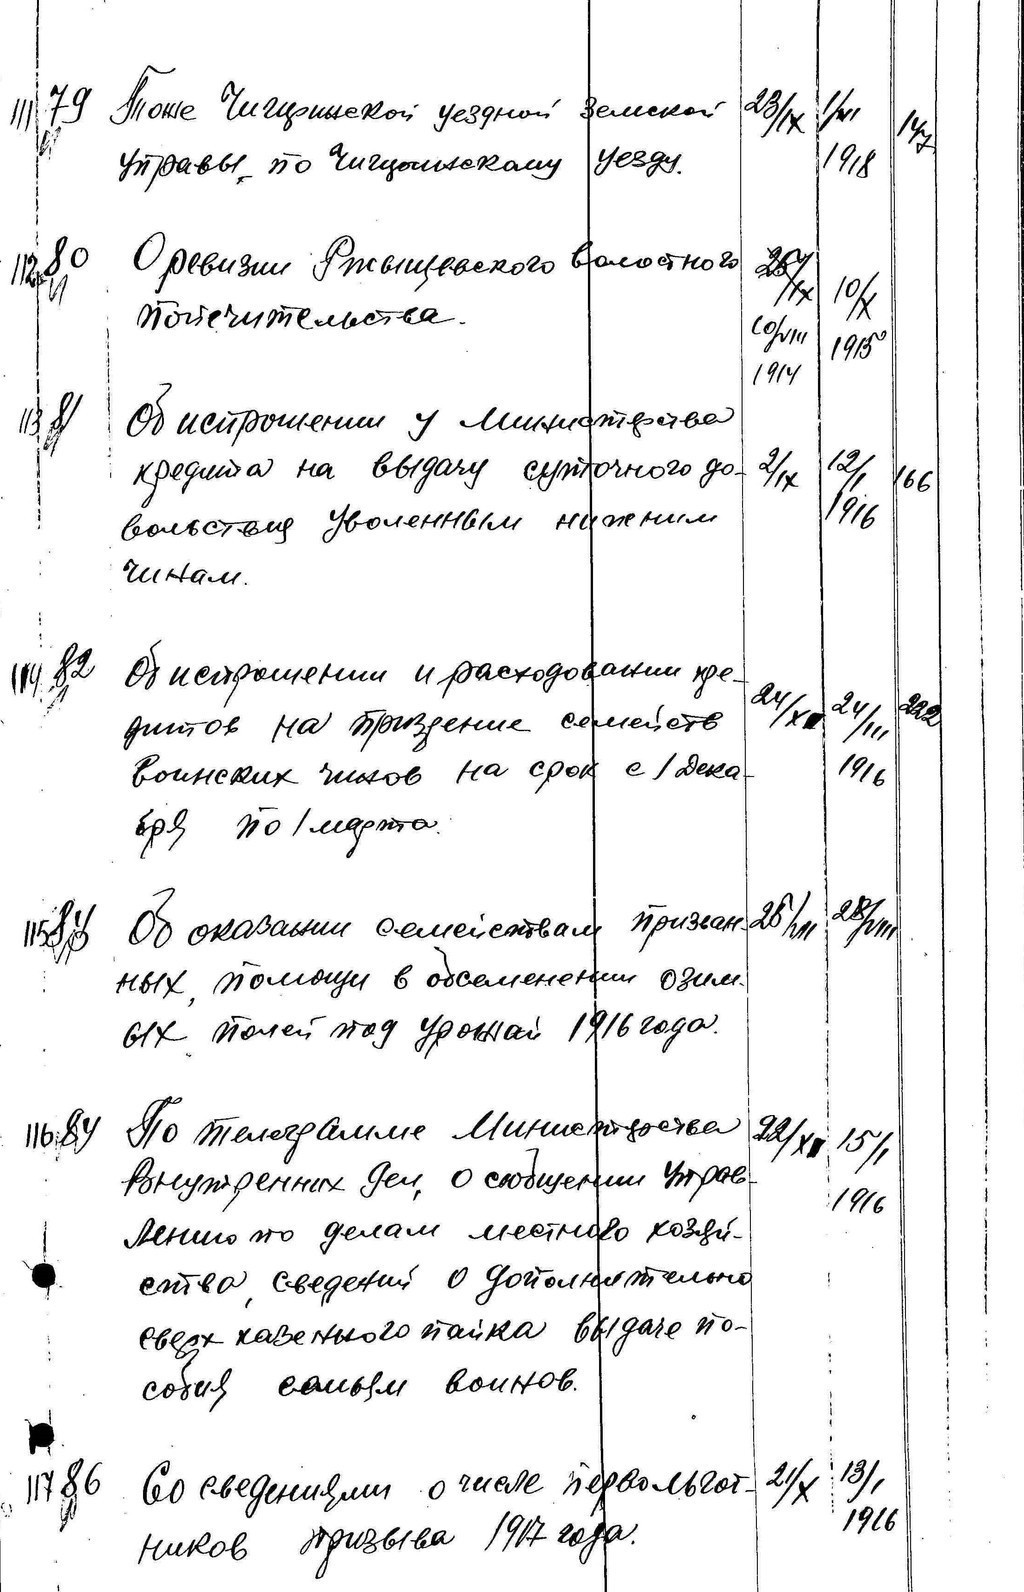 111 79 Тоже Чигиринской уездной Земской 23/IX 1/VII 147
Управы, по Чигиринскому уезду. 1918
112 80 О ревизии Ржищевского волостного /IX 10/X
попечительства. 10/VIII 1915
1914
113 81 Об испрошении у Министерства
кредита на выдачу суточного до- 2/IX 12/I 166
вольствия уволенным нижним 1916
чинам.
114 82 Об испрошении и расходовании кре-
дитов на призрение семейств 24/XII 24/III 222
воинских чинов на срок с 1 Дека- 1916
бря по 1 марта.
115 Об оказании семействам призван- 28/VIII
ных, помощи в обсеменении озим-
ых полей под урожай 1916 года.
116 84 По телеграмме Министерства 22/XII 15/I
Внутренних Дел, о сообщении Управ- 1916
лению по делам местного хозяй-
ства, сведений о дополнительно
сверх казенного пайка выдаче по-
собия семьям воинов.
117 86 Со сведениями о числе первольгот- 21/X 13/I
ников призыва 1917 года. 1916